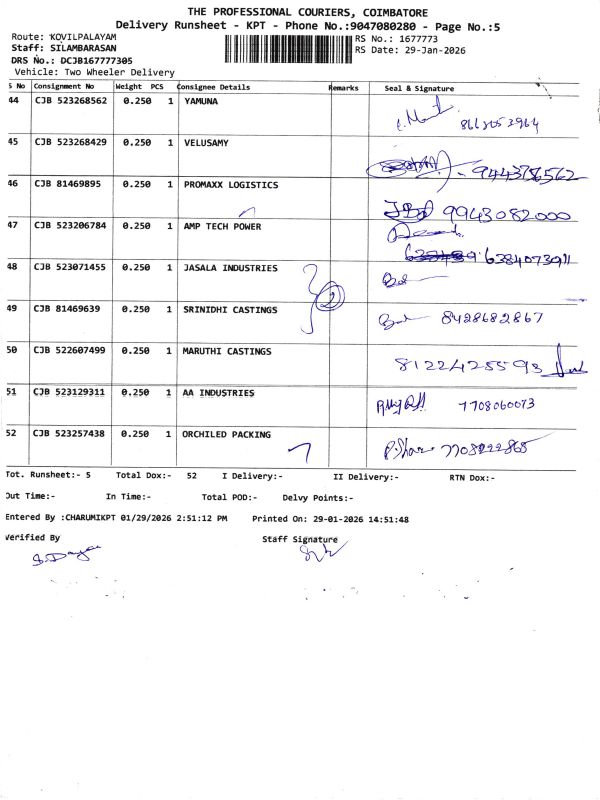 THE PROFESSIONAL COURIERS, COIMBATORE
Delivery Runsheet - KPT - Phone No.:9047080280 - Page No.:5
Route: KOVILPALAYAM
RS No.: 1677773
Staff: SILAMBARASAN
RS Date: 29-Jan-2026
DRS No.: DCJB167777305
Vehicle: Two Wheeler Delivery
S No Consignment No Weight PCS Consignee Details Remarks Seal & Signature
44 CJB 523268562 0.250 1 YAMUNA
45 CJB 523268429 0.250 1 VELUSAMY
46 CJB 81469895 0.250 1 PROMAXX LOGISTICS 9943082000
47 CJB 523206784 0.250 1 AMP TECH POWER 6384073911
48 CJB 523071455 0.250 1 JASALA INDUSTRIES
2
49 CJB 81469639 0.250 1 SRINIDHI CASTINGS 8428682867
50 CJB 522607499 0.250 1 MARUTHI CASTINGS 8122425593
51 CJB 523129311 0.250 1 AA INDUSTRIES 7708060073
52 CJB 523257438 0.250 1 ORCHILED PACKING
Tot. Runsheet:- 5 Total Dox:- 52 I Delivery:- II Delivery:- RTN Dox:-
Out Time:- In Time:- Total POD:- Delvy Points:-
Entered By :CHARUMIKPT 01/29/2026 2:51:12 PM Printed On: 29-01-2026 14:51:48
Verified By Staff Signature